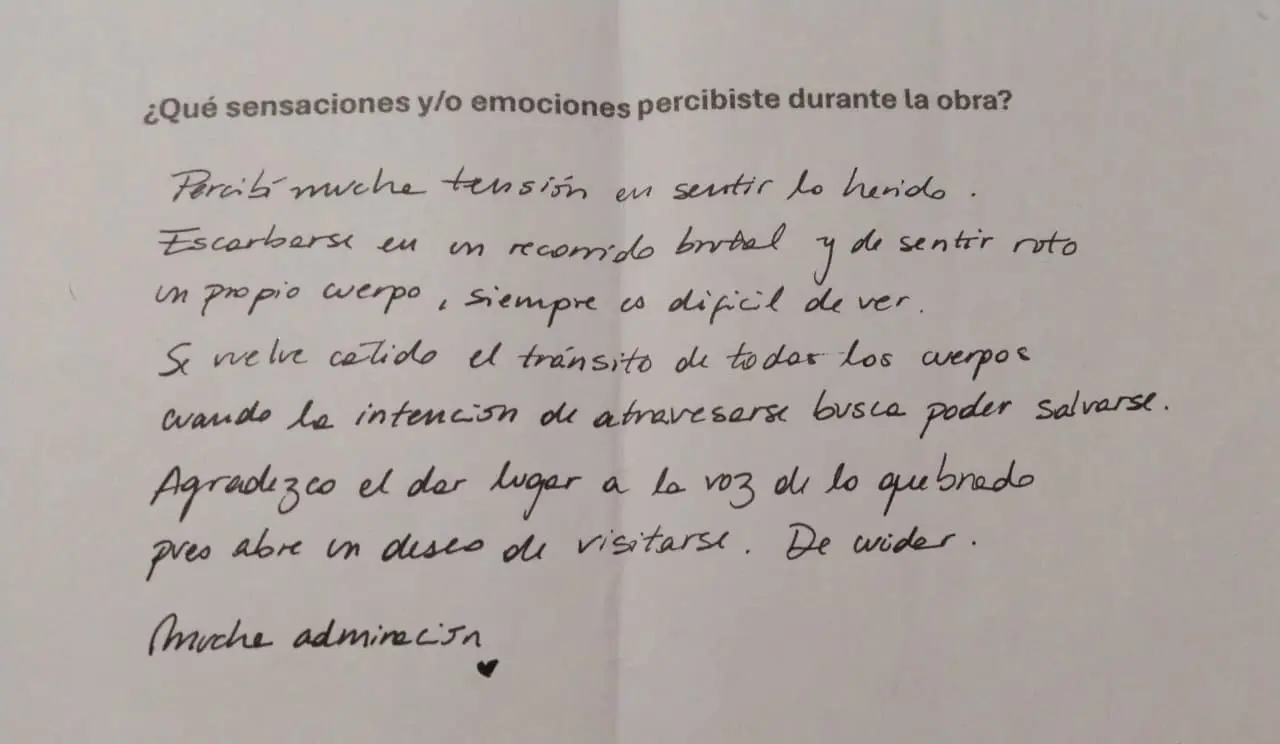 ¿Qué sensaciones y/o emociones percibiste durante la obra?
Percibí mucha tensión en sentir lo herido.
Escarbarse en un recorrido brutal y de sentir roto
un propio cuerpo, siempre es dificil de ver.
Se vuelve cálido el tránsito de todos los cuerpos
cuando la intención de atravesarse busca poder salvarse.
Agradezco el dar lugar a la voz de lo quebrado
pues abre un deseo de visitarse. De cuidar.
Mucha admiración
♥